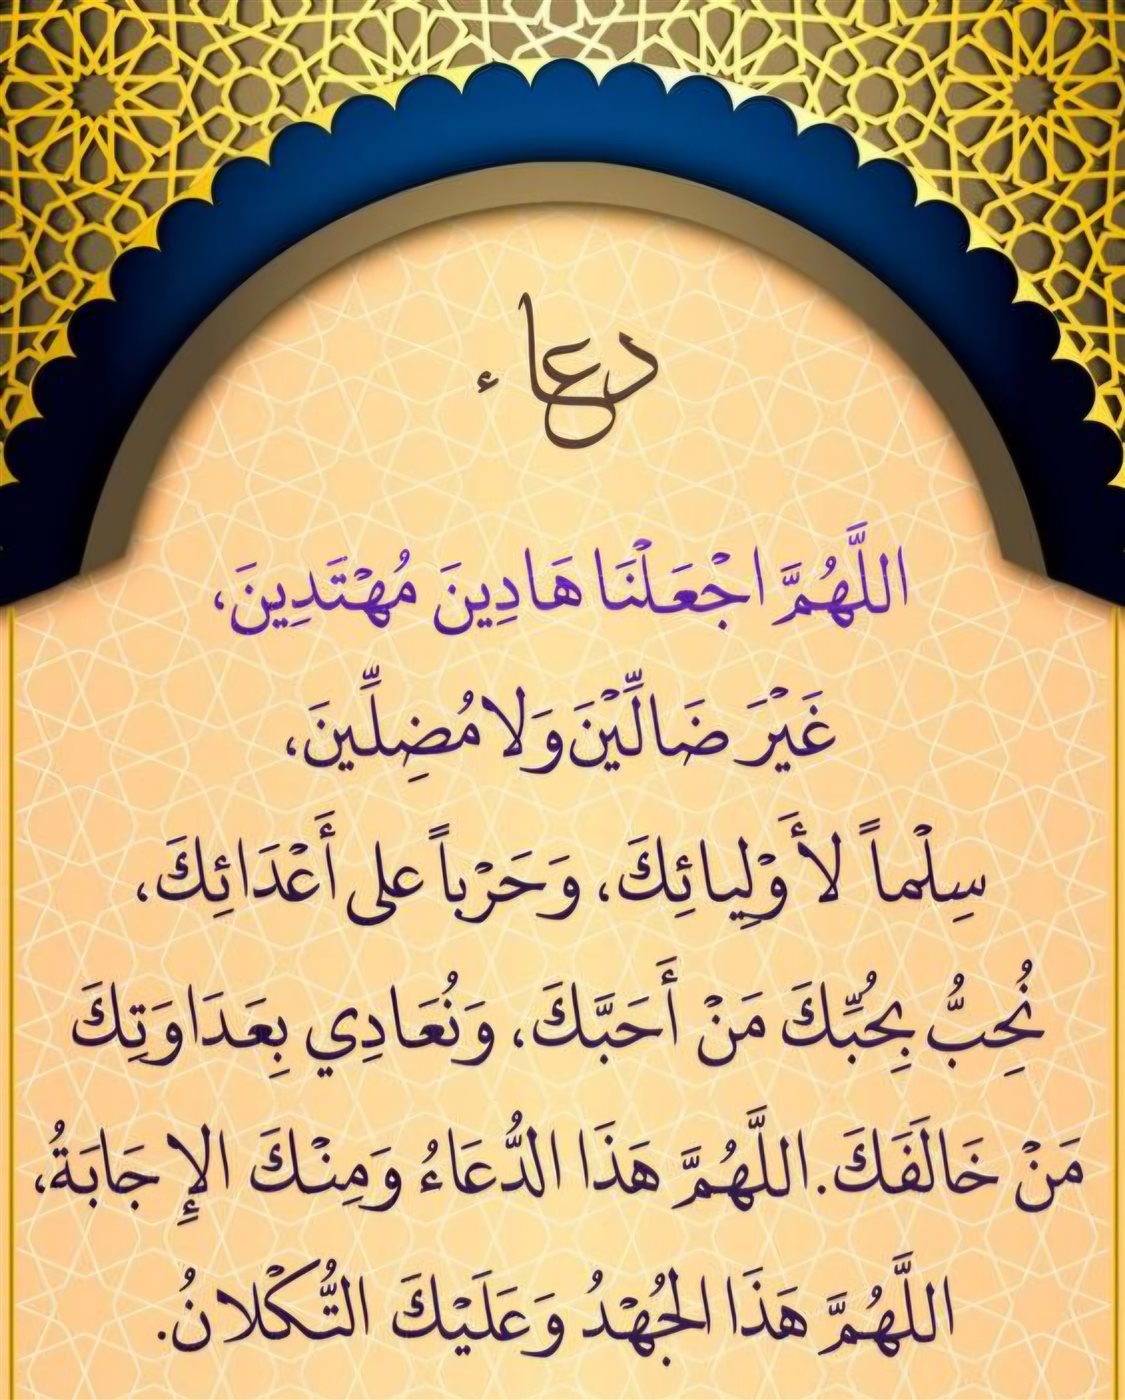 دعاء
اللَّهُمَّ اجْعَلْنَا هَادِينَ مُهْتَدِينَ،
غَيْرَ ضَالِّيْنَ وَلا مُضِلِّينَ،
سِلْماً لأَوْلِيائِكَ، وَحَرْباً على أَعْدَائِكَ،
نُحِبُّ بِحُبِّكَ مَنْ أَحَبَّكَ، وَنُعَادِي بِعَدَاوَتِكَ
مَنْ خَالَفَكَ. اللَّهُمَّ هَذَا الدُّعَاءُ وَمِنْكَ الإِجَابَةُ،
اللَّهُمَّ هَذَا الجُهْدُ وَعَلَيْكَ التُّكْلانُ.